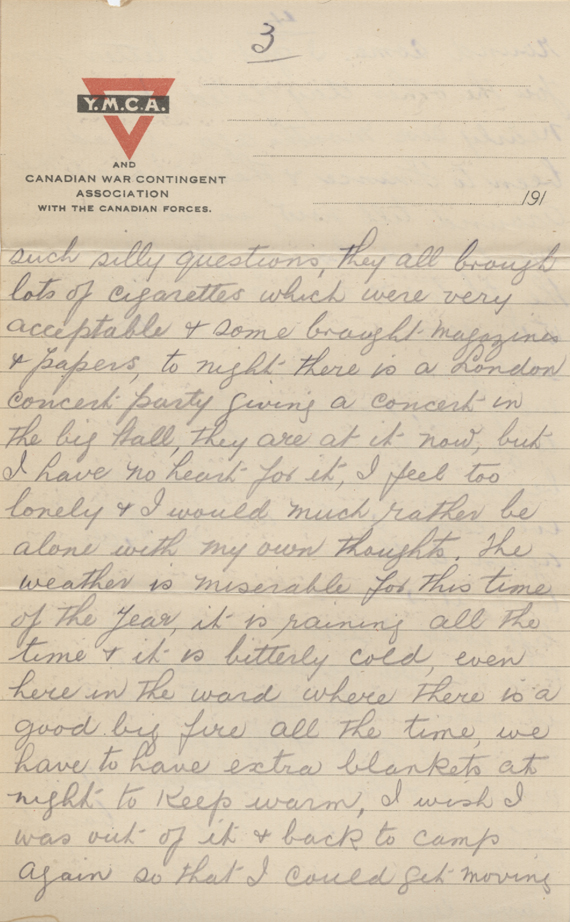 3
Y.M.C.A.
AND
CANADIAN WAR CONTINGENT
ASSOCIATION
WITH THE CANADIAN FORCES.
191
such silly questions, they all brough
lots of cigarettes which were very
acceptable & some brought magazines
& papers, to night there is a London
concert party giving a concert in
the big Hall, they are at it now, but
I have no heart for it, I feel too
lonely & I would much rather be
alone with my own thoughts. The
weather is miserable for this time
of the Year, it is raining all the
time & it is bitterly cold, even
here in the ward where there is a
good big fire all the time, we
have to have extra blankets at
night to Keep warm, I wish I
was out of it & back to camp
again so that I could get moving